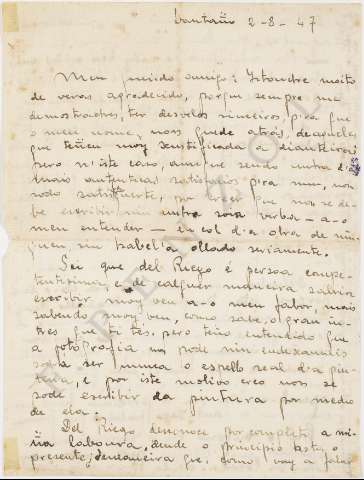 Santaño 2-8-47
Meu querido amigo: Estouche moito
de veras agradecido, porque sempre me
demostraches, ter desvelos sinceiros, pra que
o meu nome, non quede atrás, de aqueles
que teñen moy xustificada a dianteira;
pero n'iste caso, anque sendo unha d'as
mais autenticas satisfaciós pra min, non
podo satisfacerte, por creer que non se de-
be escribir nin unha soia verba - a-o
meu entender - en col d'a obra de nin-
guen, sin habel-a ollado seriamente.
Sei que del Riego é persoa compe-
tentisima, e de calquer maneira sabria
escribir moy ven a-o meu fabor, mais
sabendo moy ven, como sabe, o gran in-
tres que ti tés, pero teño entendido que
a fotografia non pode nin endexamais
poderá ser nunca o espello real d'a pin-
tura, e por iste motivo creo non se
pode escribir da pintura por medio
de eia.
Del Riego desconoce por completo a mi-
ña laboura, dende o principio asta o
presente, de maneira que, como vay a falar